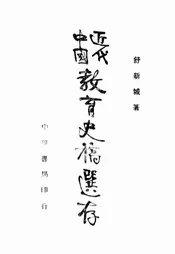 舒新城著
近代
中國教育史稿選存
中華書局印行